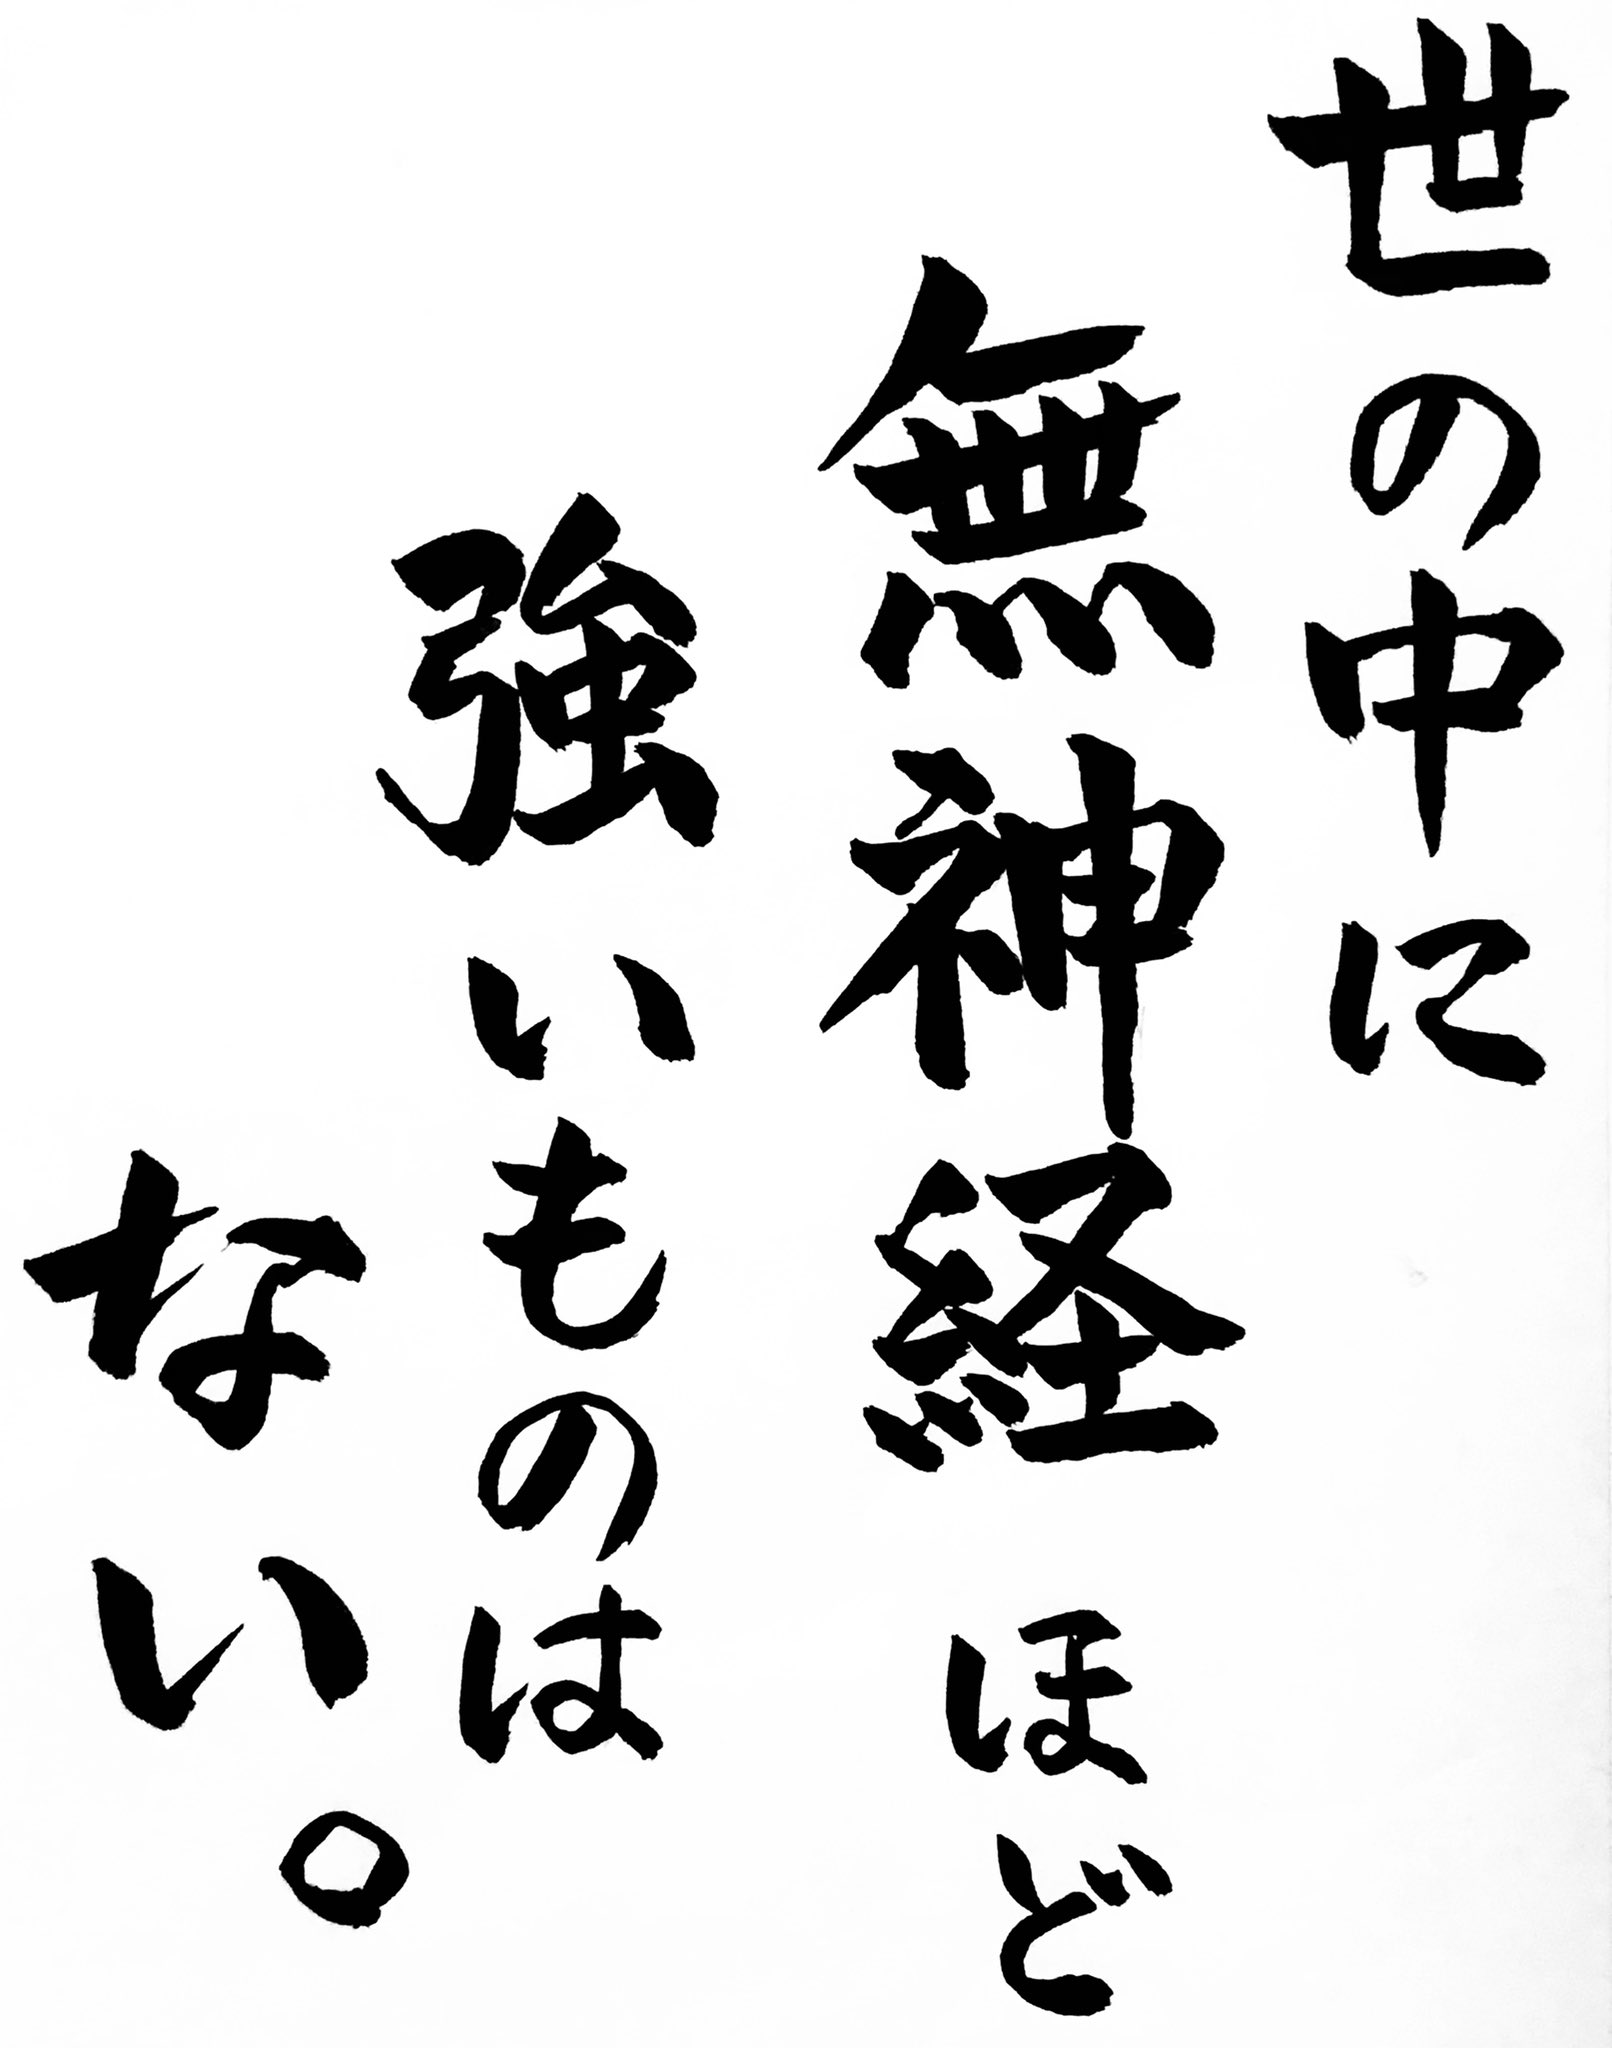 世の中に
無神経ほど
強いものは
ない。